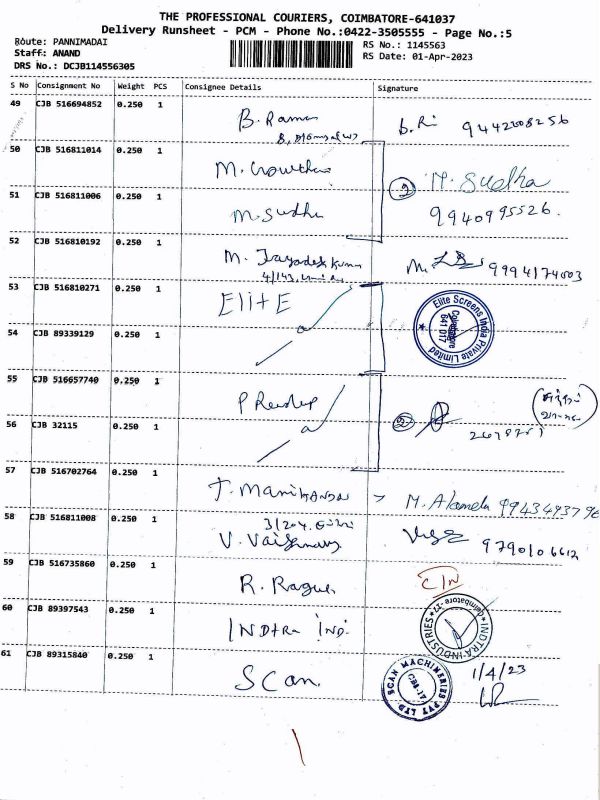 THE PROFESSIONAL COURIERS, COIMBATORE-641037
Delivery Runsheet - PCM - Phone No.:0422-3505555 - Page No.:5
Route: PANNIMADAI
Staff: ANAND
DRS No.: DCJB114556305
RS No.: 1145563
RS Date: 01-Apr-2023
S No Consignment No Weight PCS Consignee Details Signature
49 CJB 516694852 0.250 1 B. Raman
50 CJB 516811014 0.250 1 M. Gowtham
51 CJB 516811006 0.250 1 M. Sudha 2 M. Sudha
9940995526.
52 CJB 516810192 0.250 1 M. Jayadeesh Kumar M. 9994174003
53 CJB 516810271 0.250 1 ElitE Elite Screens India Private Limited Coimbatore 641 017
54 CJB 89339129 0.250 1
55 CJB 516657740 0.250 1
56 CJB 32115 0.250 1 2
57 CJB 516702764 0.250 1 T. Manikandan > M. Alamelu
58 CJB 516811008 0.250 1 V. Vaishnavy
59 CJB 516735860 0.250 1 R. Ragu C/N
60 CJB 89397543 0.250 1 INDtRA IND. INDTRA INDUSTRIES Coimbatore-17
61 CJB 89315840 0.250 1 SCan. SCAN MACHINERIES PVT LTD CBE-17 1/4/23